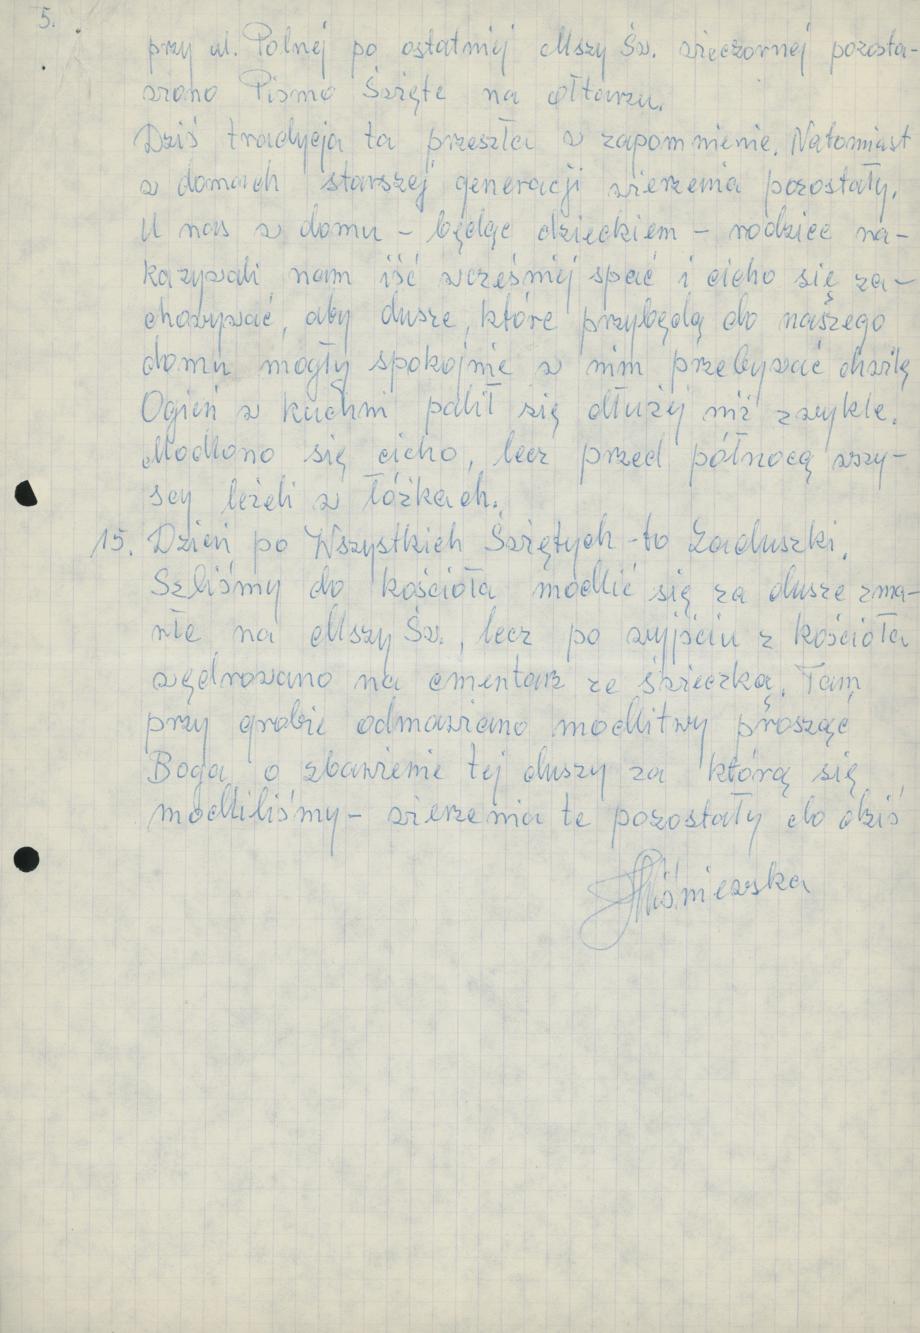 5.
przy ul. Polnej po ostatniej Mszy Św. wieczornej pozosta-
wiono Pismo Święte na ołtarzu.
Dziś tradycja ta przeszła w zapomnienie. Natomiast
w domach starszej generacji wierzenia pozostały.
U nas w domu - będąc dzieckiem - rodzice na-
kazywali nam iść wcześniej spać i cicho się za-
chowywać, aby dusze, które przybędą do naszego
domu mogły spokojnie w nim przebywać chwilę
Ogień w kuchni palił się dłużej niż zwykle.
Modlono się cicho, lecz przed północą wszy-
scy leżeli w łóżkach.
15. Dzień po Wszystkich Świętych - to Zaduszki.
Szliśmy do kościoła modlić się za dusze zma-
rłe na Mszy Św., lecz po wyjściu z kościoła
wędrowano na cmentarz ze świeczką. Tam
przy grobie odmawiano modlitwy prosząc
Boga o zbawienie tej duszy za którą się
modliliśmy - wierzenia te pozostały do dziś
Wiśniewska